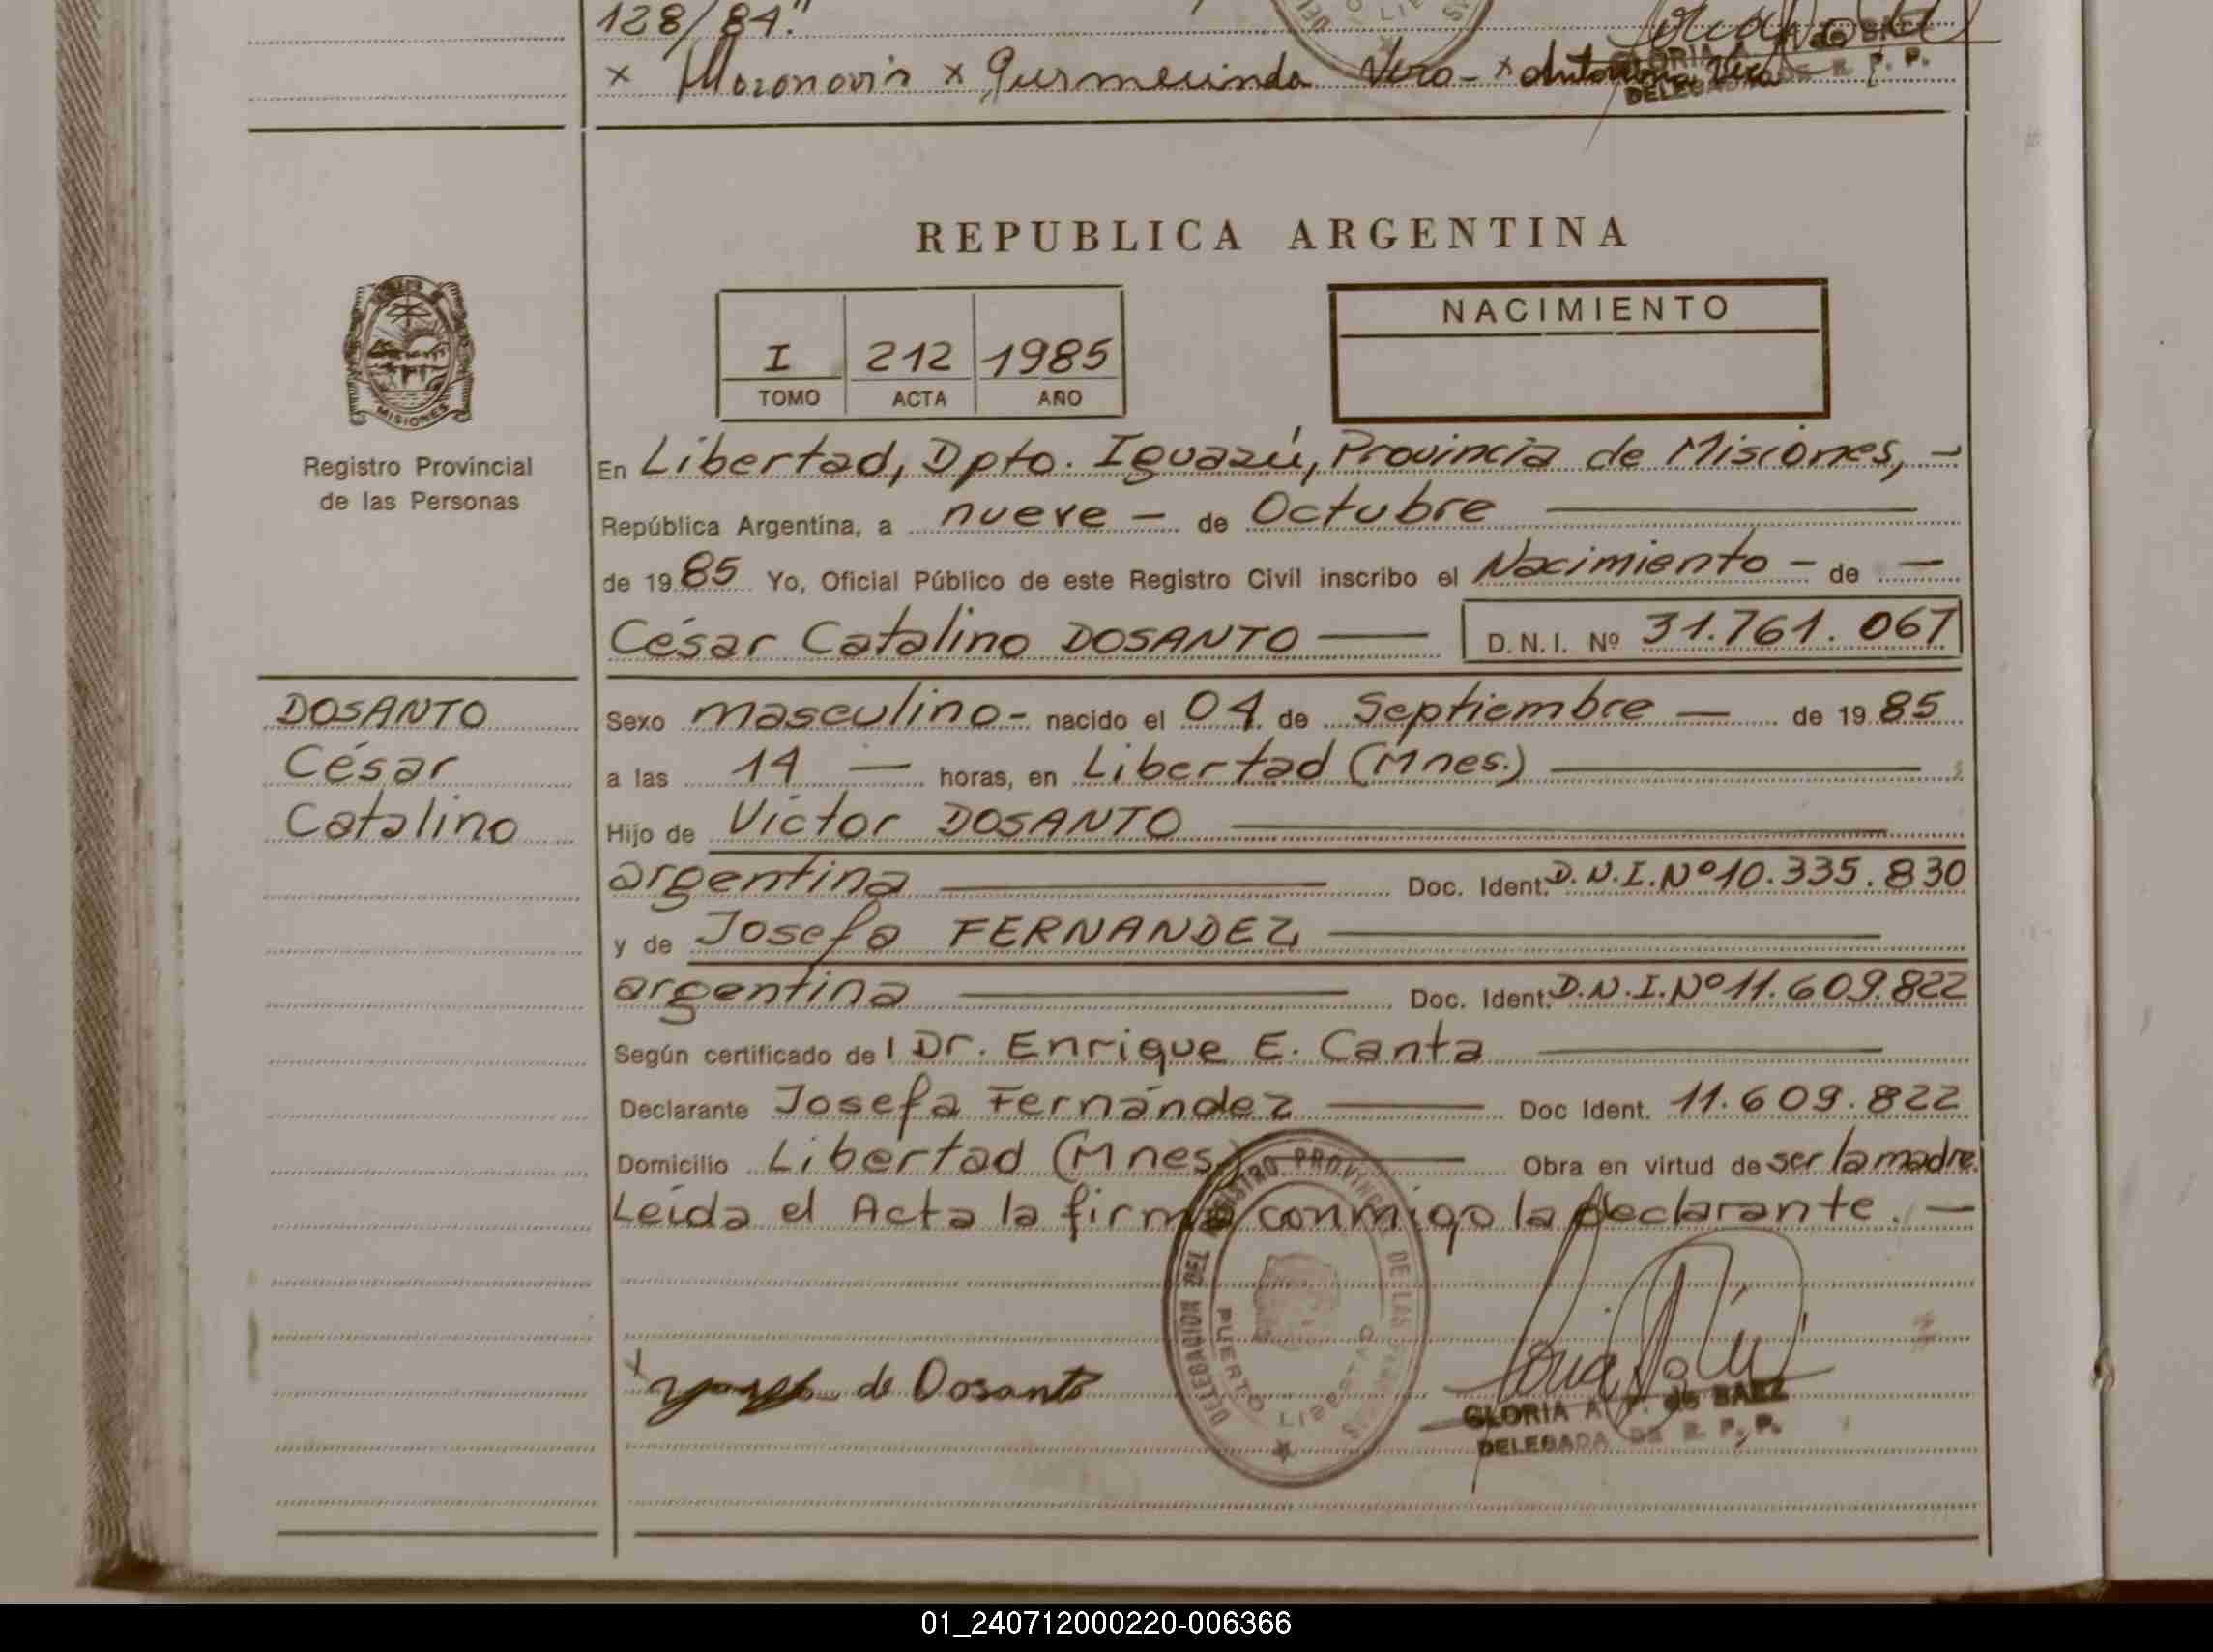 128/84."
x Moronovis x Gurmecinda Vero - x Antonina Vera
GLORIA A. de BAEZ
DELEGADA DE R. P. P.
REPUBLICA ARGENTINA
MISIONES
Registro Provincial
de las Personas
I 212 1985
TOMO ACTA AÑO
NACIMIENTO
En Libertad, Dpto. Iguazú, Provincia de Misiones, -
República Argentina, a nueve - de Octubre
de 1985 Yo, Oficial Público de este Registro Civil inscribo el Nacimiento - de -
César Catalino DOSANTO D.N.I. Nº 31.761.067
DOSANTO
César
Catalino
Sexo masculino - nacido el 04 de Septiembre - de 1985
a las 14 - horas, en Libertad (Mnes.)
Hijo de Víctor DOSANTO
argentina Doc. Ident. D.N.I. Nº 10.335.830
y de Josefa FERNANDEZ
argentina Doc. Ident. D.N.I. Nº 11.609.822
Según certificado del Dr. Enrique E. Canta
Declarante Josefa Fernández Doc Ident. 11.609.822
Domicilio Libertad (Mnes) Obra en virtud de ser la madre.
Leída el Acta la firma conmigo la declarante. -
DELEGACION DEL REGISTRO PROVINCIAL DE LAS PERSONAS
PUERTO LIBERTAD
x de Dosanto
GLORIA A. P. de BAEZ
DELEGADA DE R. P. P.
01_240712000220-006366